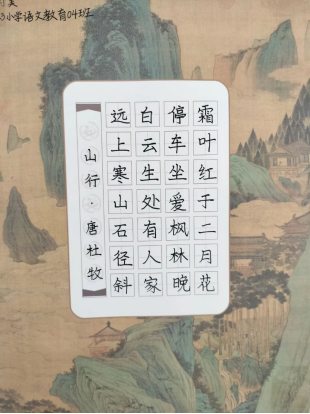 3小学语文教育04班
山行·唐杜牧
远上寒山石径斜
白云生处有人家
停车坐爱枫林晚
霜叶红于二月花